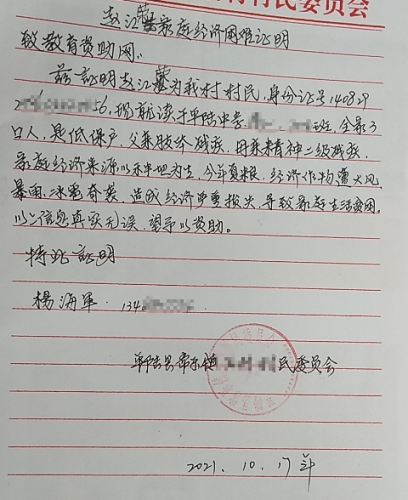 村民委员会
赵江馨家庭经济困难证明
致教育资助网：
兹证明赵江馨为我村村民，身份证号140829
56，现就读于平陆中学 班，全家3
口人，是低保户，父亲肢体残疾，母亲精神二级残疾，
家庭经济来源以种地为生，今年粮，经济作物遭大风
暴雨、冰雹奇袭，造成经济严重损失，导致家庭生活贫困。
以上信息真实无误，望予以资助。
特此证明
杨海军 134
平陆县 民委员会
2021.10.17年